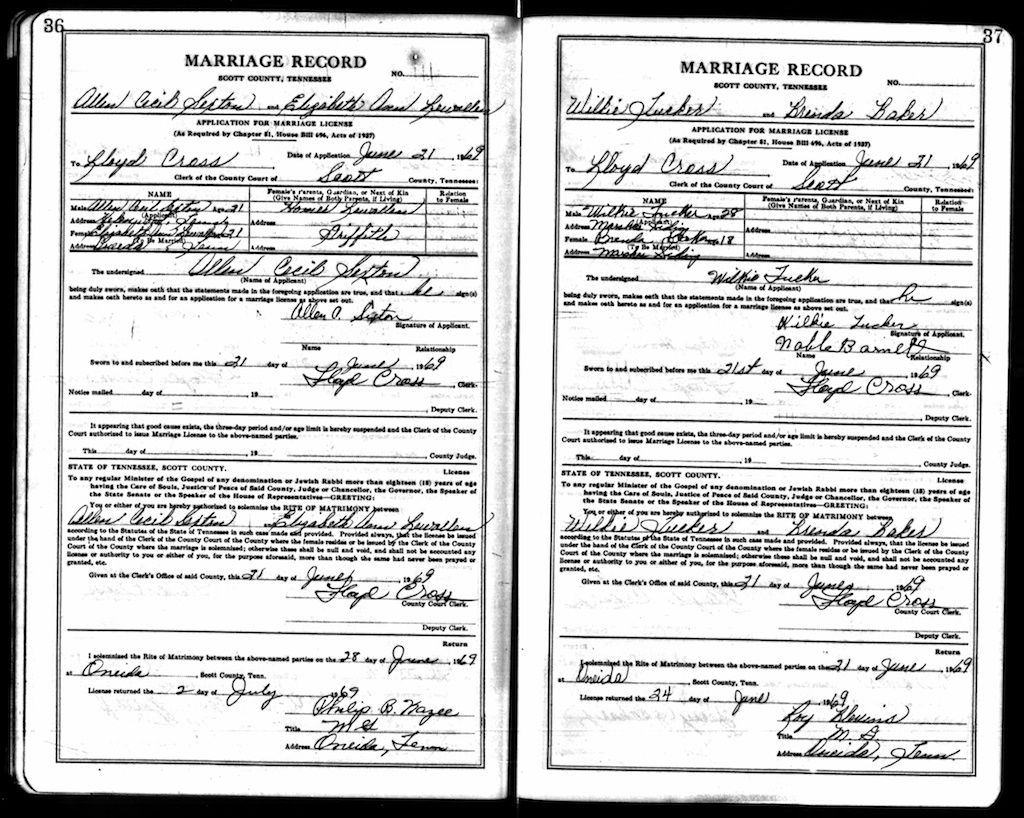 36
MARRIAGE RECORD
NO.
SCOTT COUNTY, TENNESSEE
Allen Cecil Sexton and Elizabeth Ann Lewallen
APPLICATION FOR MARRIAGE LICENSE
(As Required by Chapter 81, House Bill 696, Acts of 1937)
To Lloyd Cross Date of Application June 21 1969
Clerk of the County Court of Scott County, Tennessee:
NAME Female's Parents, Guardian, or Next of Kin Relation
(Give Names of Both Parents, if Living) to Female
Male Allen Cecil Sexton Age 21 Homer Lewallen
(Applicant)
Address Tenn Address
Female Elizabeth Ann Lewallen 21 Griffith
(To Be Married)
Address Oneida, Tenn Address
The undersigned Allen Cecil Sexton
(Name of Applicant)
being duly sworn, makes oath that the statements made in the foregoing application are true, and that he sign(s)
and makes oath hereto as and for an application for a marriage license as above set out.
Allen C. Sexton
Signature of Applicant.
Name Relationship
Sworn to and subscribed before me this 21 day of June 1969
Floyd Cross, Clerk.
Notice mailed day of , 19
, Deputy Clerk.
It appearing that good cause exists, the three-day period and/or age limit is hereby suspended and the Clerk of the County
Court authorized to issue Marriage License to the above-named parties.
This day of , 19 , County Judge.
STATE OF TENNESSEE, SCOTT COUNTY. License
To any regular Minister of the Gospel of any denomination or Jewish Rabbi more than eighteen (18) years of age
having the Care of Souls, Justice of Peace of Said County, Judge or Chancellor, the Governor, the Speaker of
the State Senate or the Speaker of the House of Representatives—GREETING:
You or either of you are hereby authorized to solemnize the RITE OF MATRIMONY between
Allen Cecil Sexton Elizabeth Ann Lewallen
according to the Statutes of the State of Tennessee in such case made and provided. Provided always, that the license be issued
under the hand of the Clerk of the County Court of the County where the female resides or be issued by the Clerk of the County
Court of the County where the marriage is solemnized; otherwise these shall be null and void, and shall not be accounted any
license or authority to you or either of you, for the purpose aforesaid, more than though the same had never been prayed or
granted, etc.
Given at the Clerk's Office of said County, this 21 day of June 1969
Floyd Cross
County Court Clerk.
Deputy Clerk.
Return
I solemnized the Rite of Matrimony between the above-named parties on the 28 day of June, 1969
at Oneida, Scott County, Tenn.
License returned the 2 day of July 1969
Philip B.
Title M G
Address Oneida, Tenn
37
MARRIAGE RECORD
NO.
SCOTT COUNTY, TENNESSEE
Wilkie Tucker and Brenda Baker
APPLICATION FOR MARRIAGE LICENSE
(As Required by Chapter 81, House Bill 696, Acts of 1937)
To Lloyd Cross Date of Application June 21 1969
Clerk of the County Court of Scott County, Tennessee:
NAME Female's Parents, Guardian, or Next of Kin Relation
(Give Names of Both Parents, if Living) to Female
Male Wilkie Tucker Age 28
(Applicant)
Address Siding Address
Female Brenda Baker Age 18
(To Be Married)
Address Siding Address
The undersigned Wilkie Tucker
(Name of Applicant)
being duly sworn, makes oath that the statements made in the foregoing application are true, and that he sign(s)
and makes oath hereto as and for an application for a marriage license as above set out.
Wilkie Tucker
Signature of Applicant.
Noble Barnett
Name Relationship
Sworn to and subscribed before me this 21st day of June 1969
Floyd Cross, Clerk.
Notice mailed day of , 19
, Deputy Clerk.
It appearing that good cause exists, the three-day period and/or age limit is hereby suspended and the Clerk of the County
Court authorized to issue Marriage License to the above-named parties.
This day of , 19 , County Judge.
STATE OF TENNESSEE, SCOTT COUNTY. License
To any regular Minister of the Gospel of any denomination or Jewish Rabbi more than eighteen (18) years of age
having the Care of Souls, Justice of Peace of Said County, Judge or Chancellor, the Governor, the Speaker of
the State Senate or the Speaker of the House of Representatives—GREETING:
You or either of you are hereby authorized to solemnize the RITE OF MATRIMONY between
Wilkie Tucker and Brenda Baker
according to the Statutes of the State of Tennessee in such case made and provided. Provided always, that the license be issued
under the hand of the Clerk of the County Court of the County where the female resides or be issued by the Clerk of the County
Court of the County where the marriage is solemnized; otherwise these shall be null and void, and shall not be accounted any
license or authority to you or either of you, for the purpose aforesaid, more than though the same had never been prayed or
granted, etc.
Given at the Clerk's Office of said County, this 21 day of June 1969
Floyd Cross
County Court Clerk.
Deputy Clerk.
Return
I solemnized the Rite of Matrimony between the above-named parties on the 21 day of June, 1969
at Oneida, Scott County, Tenn.
License returned the 24 day of June 1969
Roy Blevins
Title M. G.
Address Oneida, Tenn.